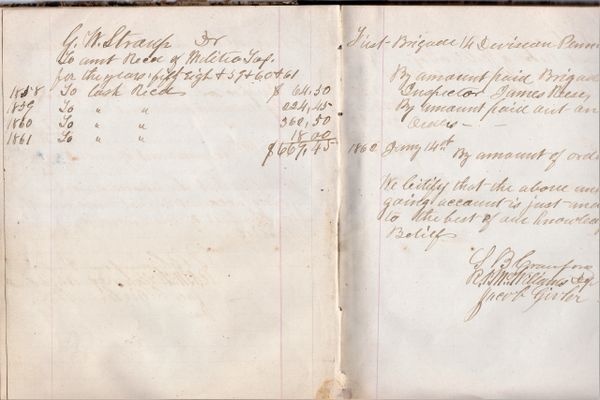 G. W. Straup Dr
To amt Recd of Militia Tax.
for the years fifty Eight & 59 & 60 & 61
1858 To Cash Recd $ 64,50
1859 To " " 224,45
1860 To " " 360,50
1861 To " " 18 00
$667,45
First Brigade 14 Division Penn
By amount paid Brigade
Inspector James
By amount paid out on
Orders - -
1862 Jany 14th By amount of ord
We Certify that the above and
going account is just and
to the best of our knowledg
Belief
Jacob